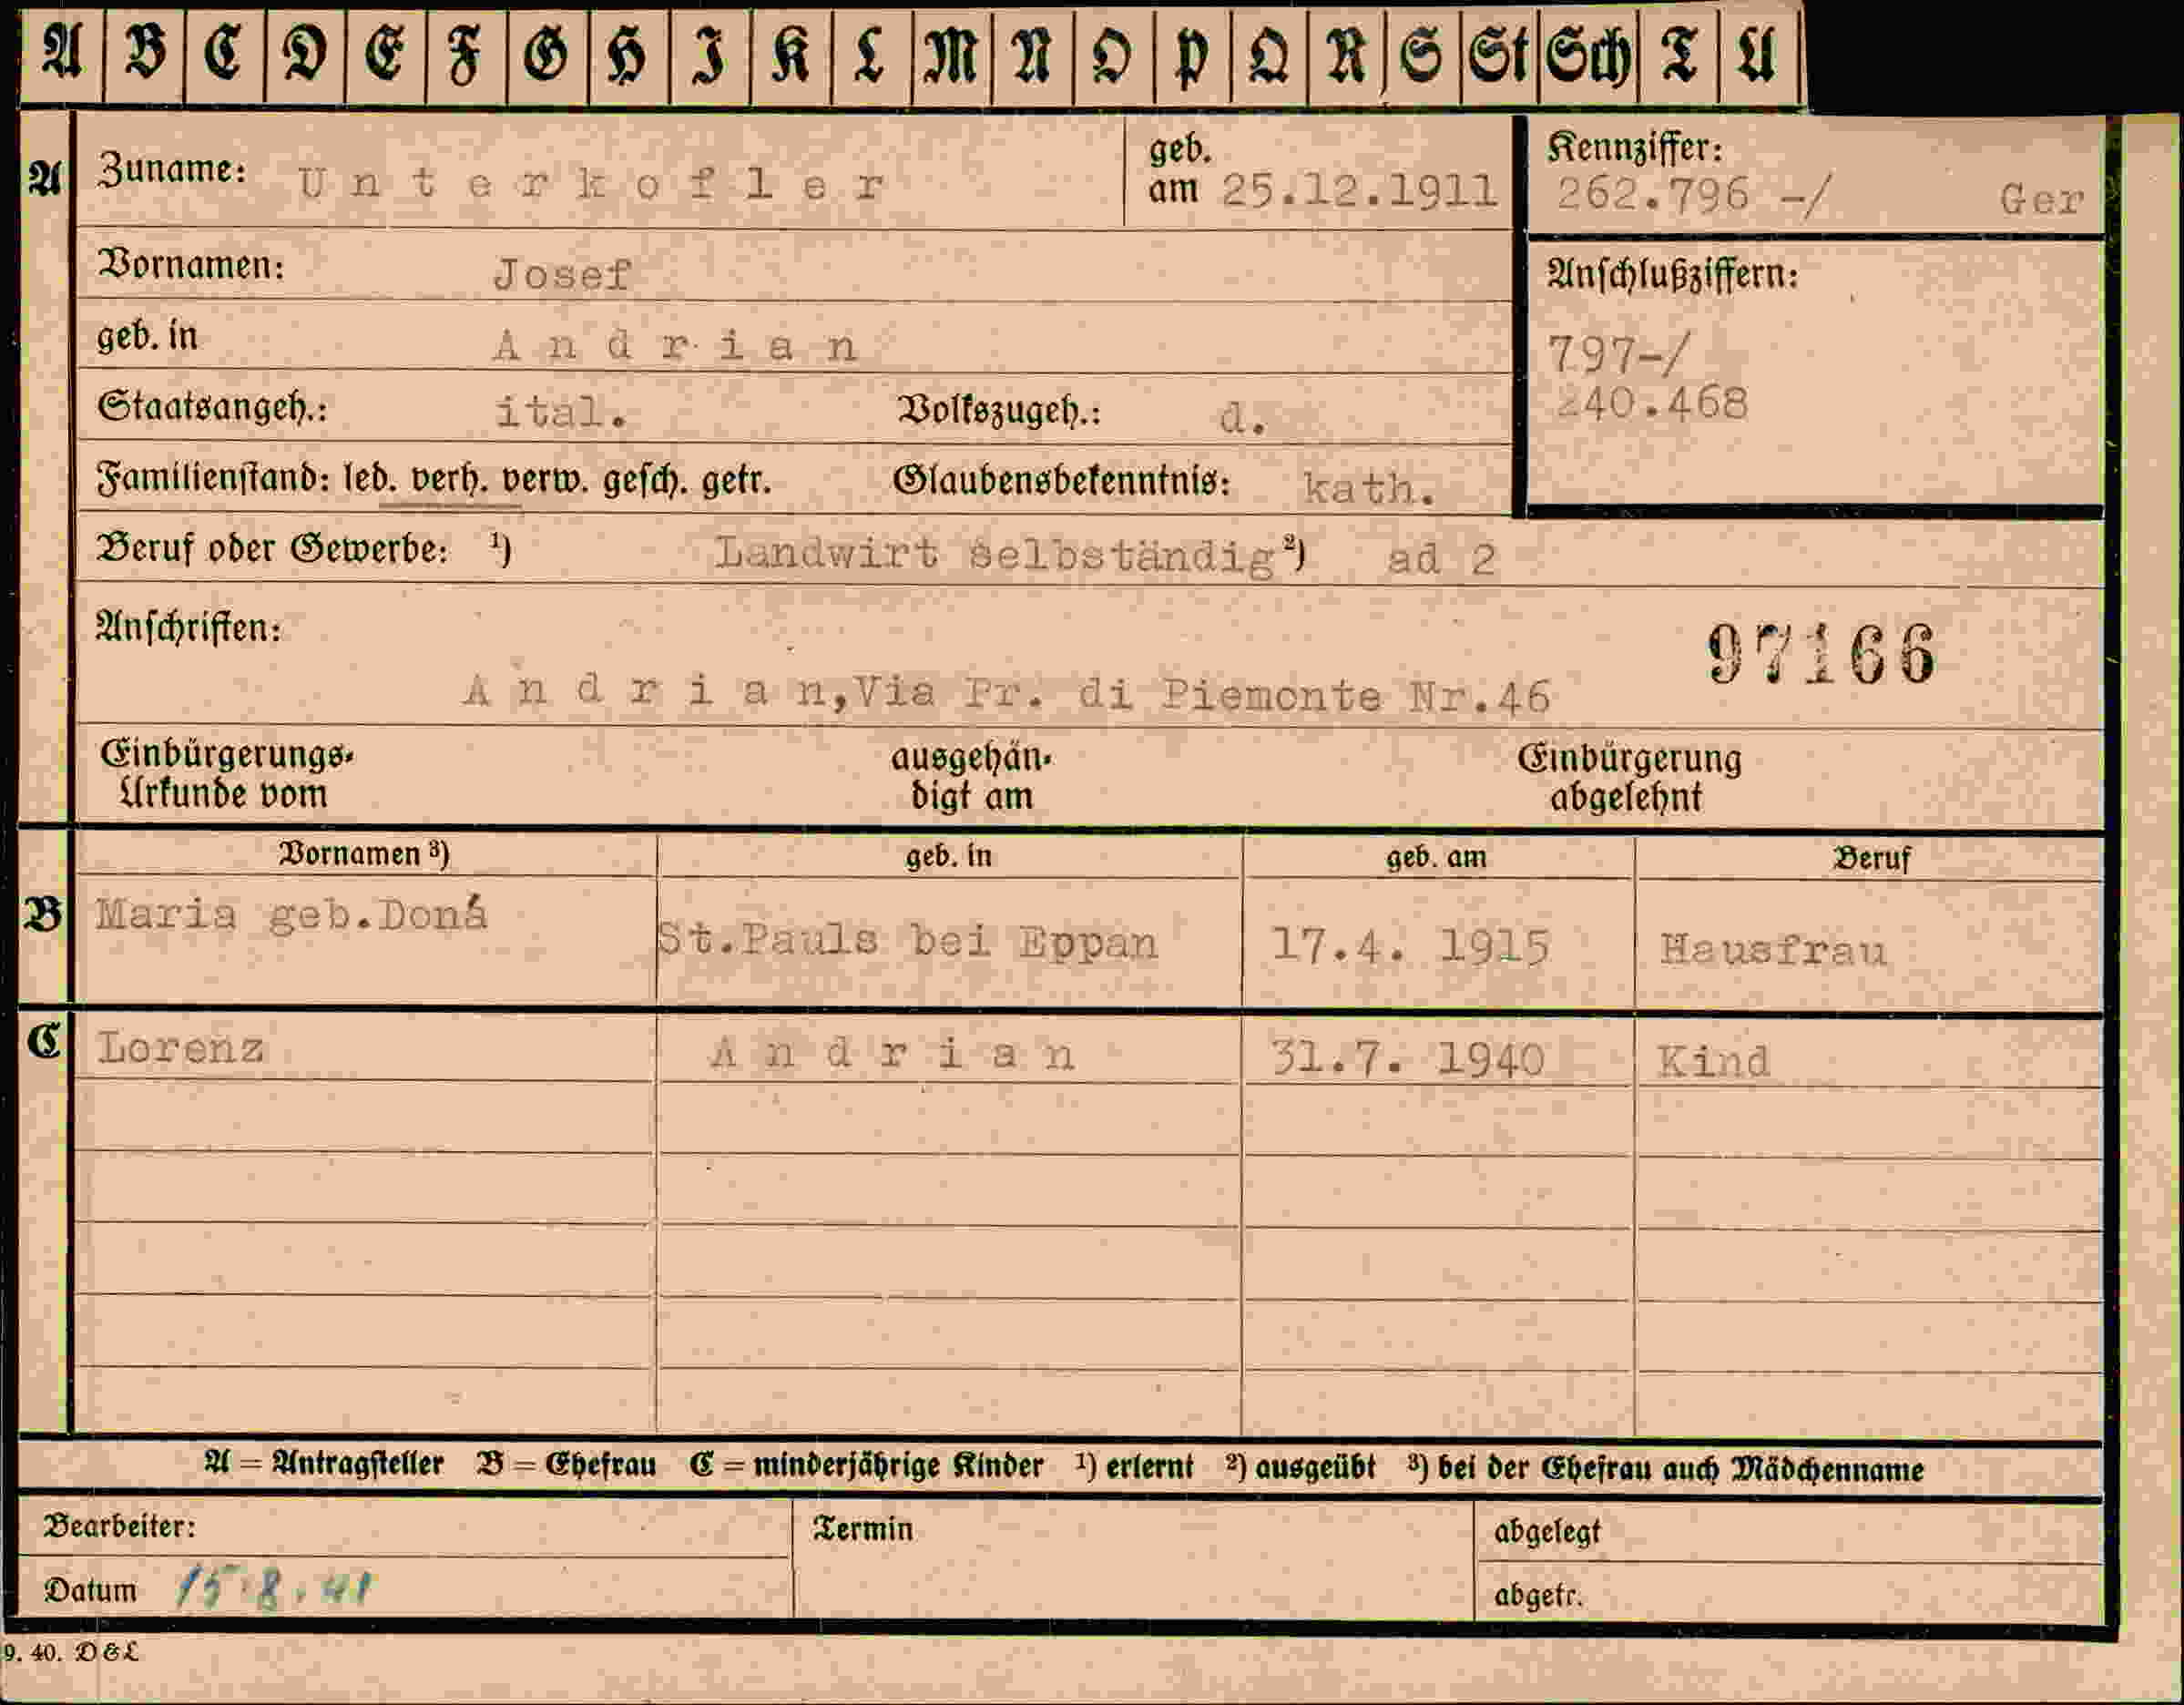 A B C D E F G H I K L M N O P Q R S St Sch T U
A Zuname: Unterkofler geb. am 25.12.1911 Kennziffer: 262.796 -/ Ger
Vornamen: Josef Anschlußziffern:
geb. in Andrian 797-/
Staatsangeh.: ital. Volkszugeh.: d. 240.468
Familienstand: led. verh. verw. gesch. getr. Glaubensbekenntnis: kath.
Beruf oder Gewerbe: ¹) Landwirt selbständig ²) ad 2
Anschriften: 97166
Andrian, Via Pr. di Piemonte Nr.46
Einbürgerungs- ausgehän- Einbürgerung
Urkunde vom digt am abgelehnt
Vornamen ³) geb. in geb. am Beruf
B Maria geb.Doná St.Pauls bei Eppan 17.4. 1915 Hausfrau
C Lorenz Andrian 31.7. 1940 Kind
A = Antragsteller B = Ehefrau C = minderjährige Kinder ¹) erlernt ²) ausgeübt ³) bei der Ehefrau auch Mädchenname
Bearbeiter: Termin abgelegt
Datum 15.8.41 abgetr.
9. 40. D&L